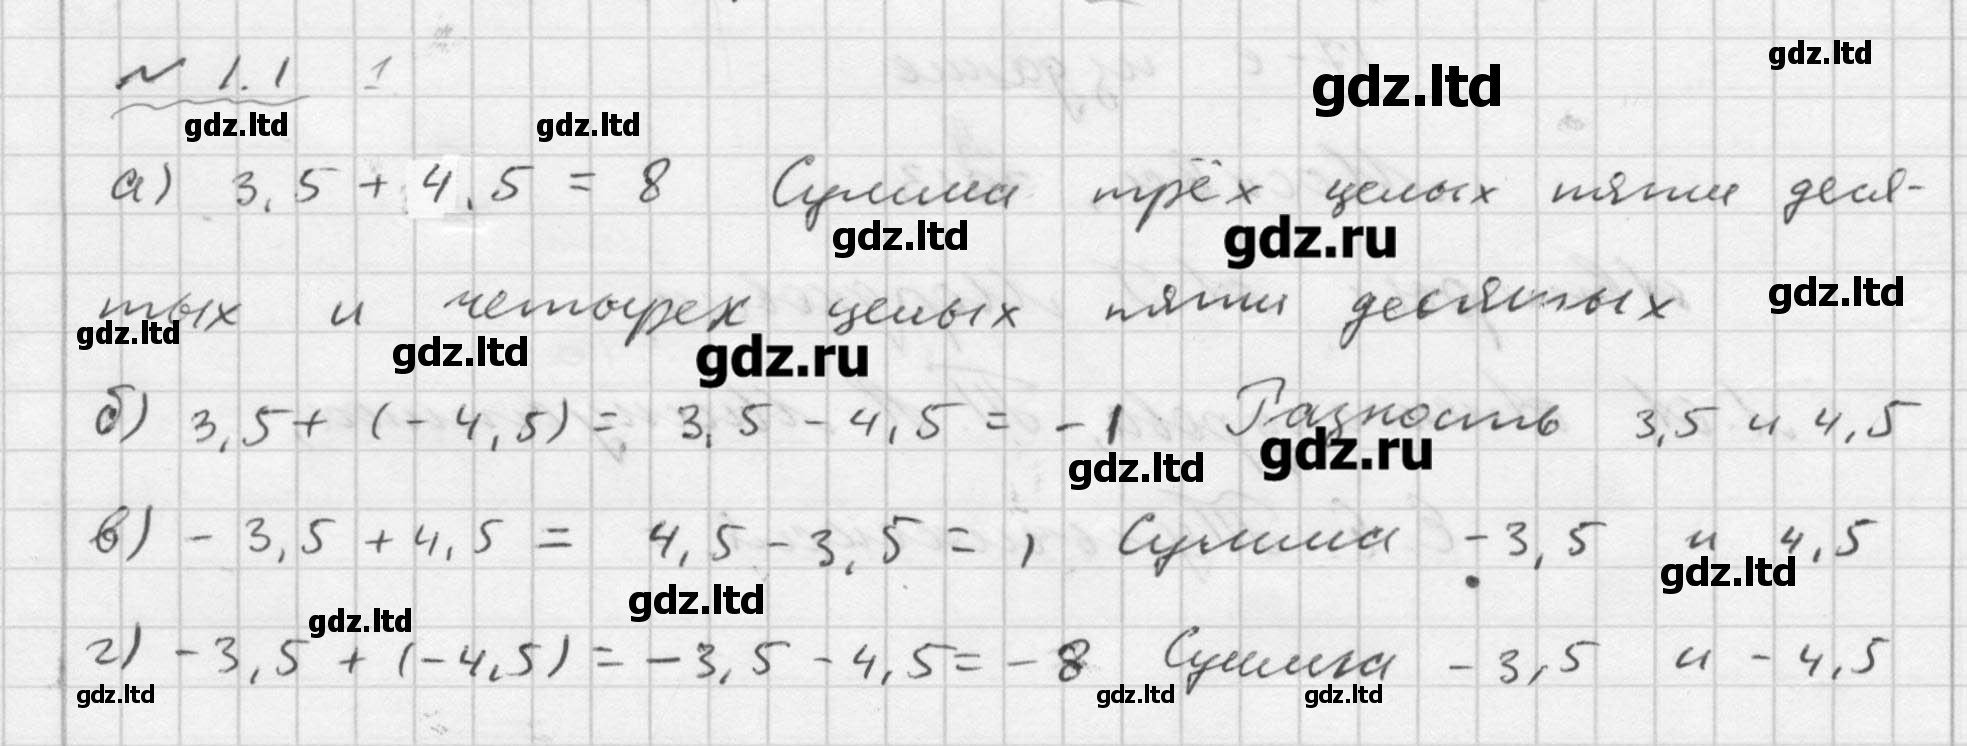 № 1.1 1
gdz.ltd
gdz.ltd
gdz.ltd gdz.ltd
а) 3,5 + 4,5 = 8 Сумма трёх целых пяти деся-
gdz.ltd gdz.ru
тых и четырех целых пяти десятых
gdz.ltd
gdz.ltd gdz.ltd gdz.ru
б) 3,5 + (-4,5) = 3,5 - 4,5 = -1 Разность 3,5 и 4,5
gdz.ltd gdz.ru
в) -3,5 + 4,5 = 4,5 - 3,5 = 1 Сумма -3,5 и 4,5
gdz.ltd
gdz.ltd gdz.ltd
г) -3,5 + (-4,5) = -3,5 - 4,5 = -8 Сумма -3,5 и -4,5
gdz.ltd gdz.ltd gdz.ltd